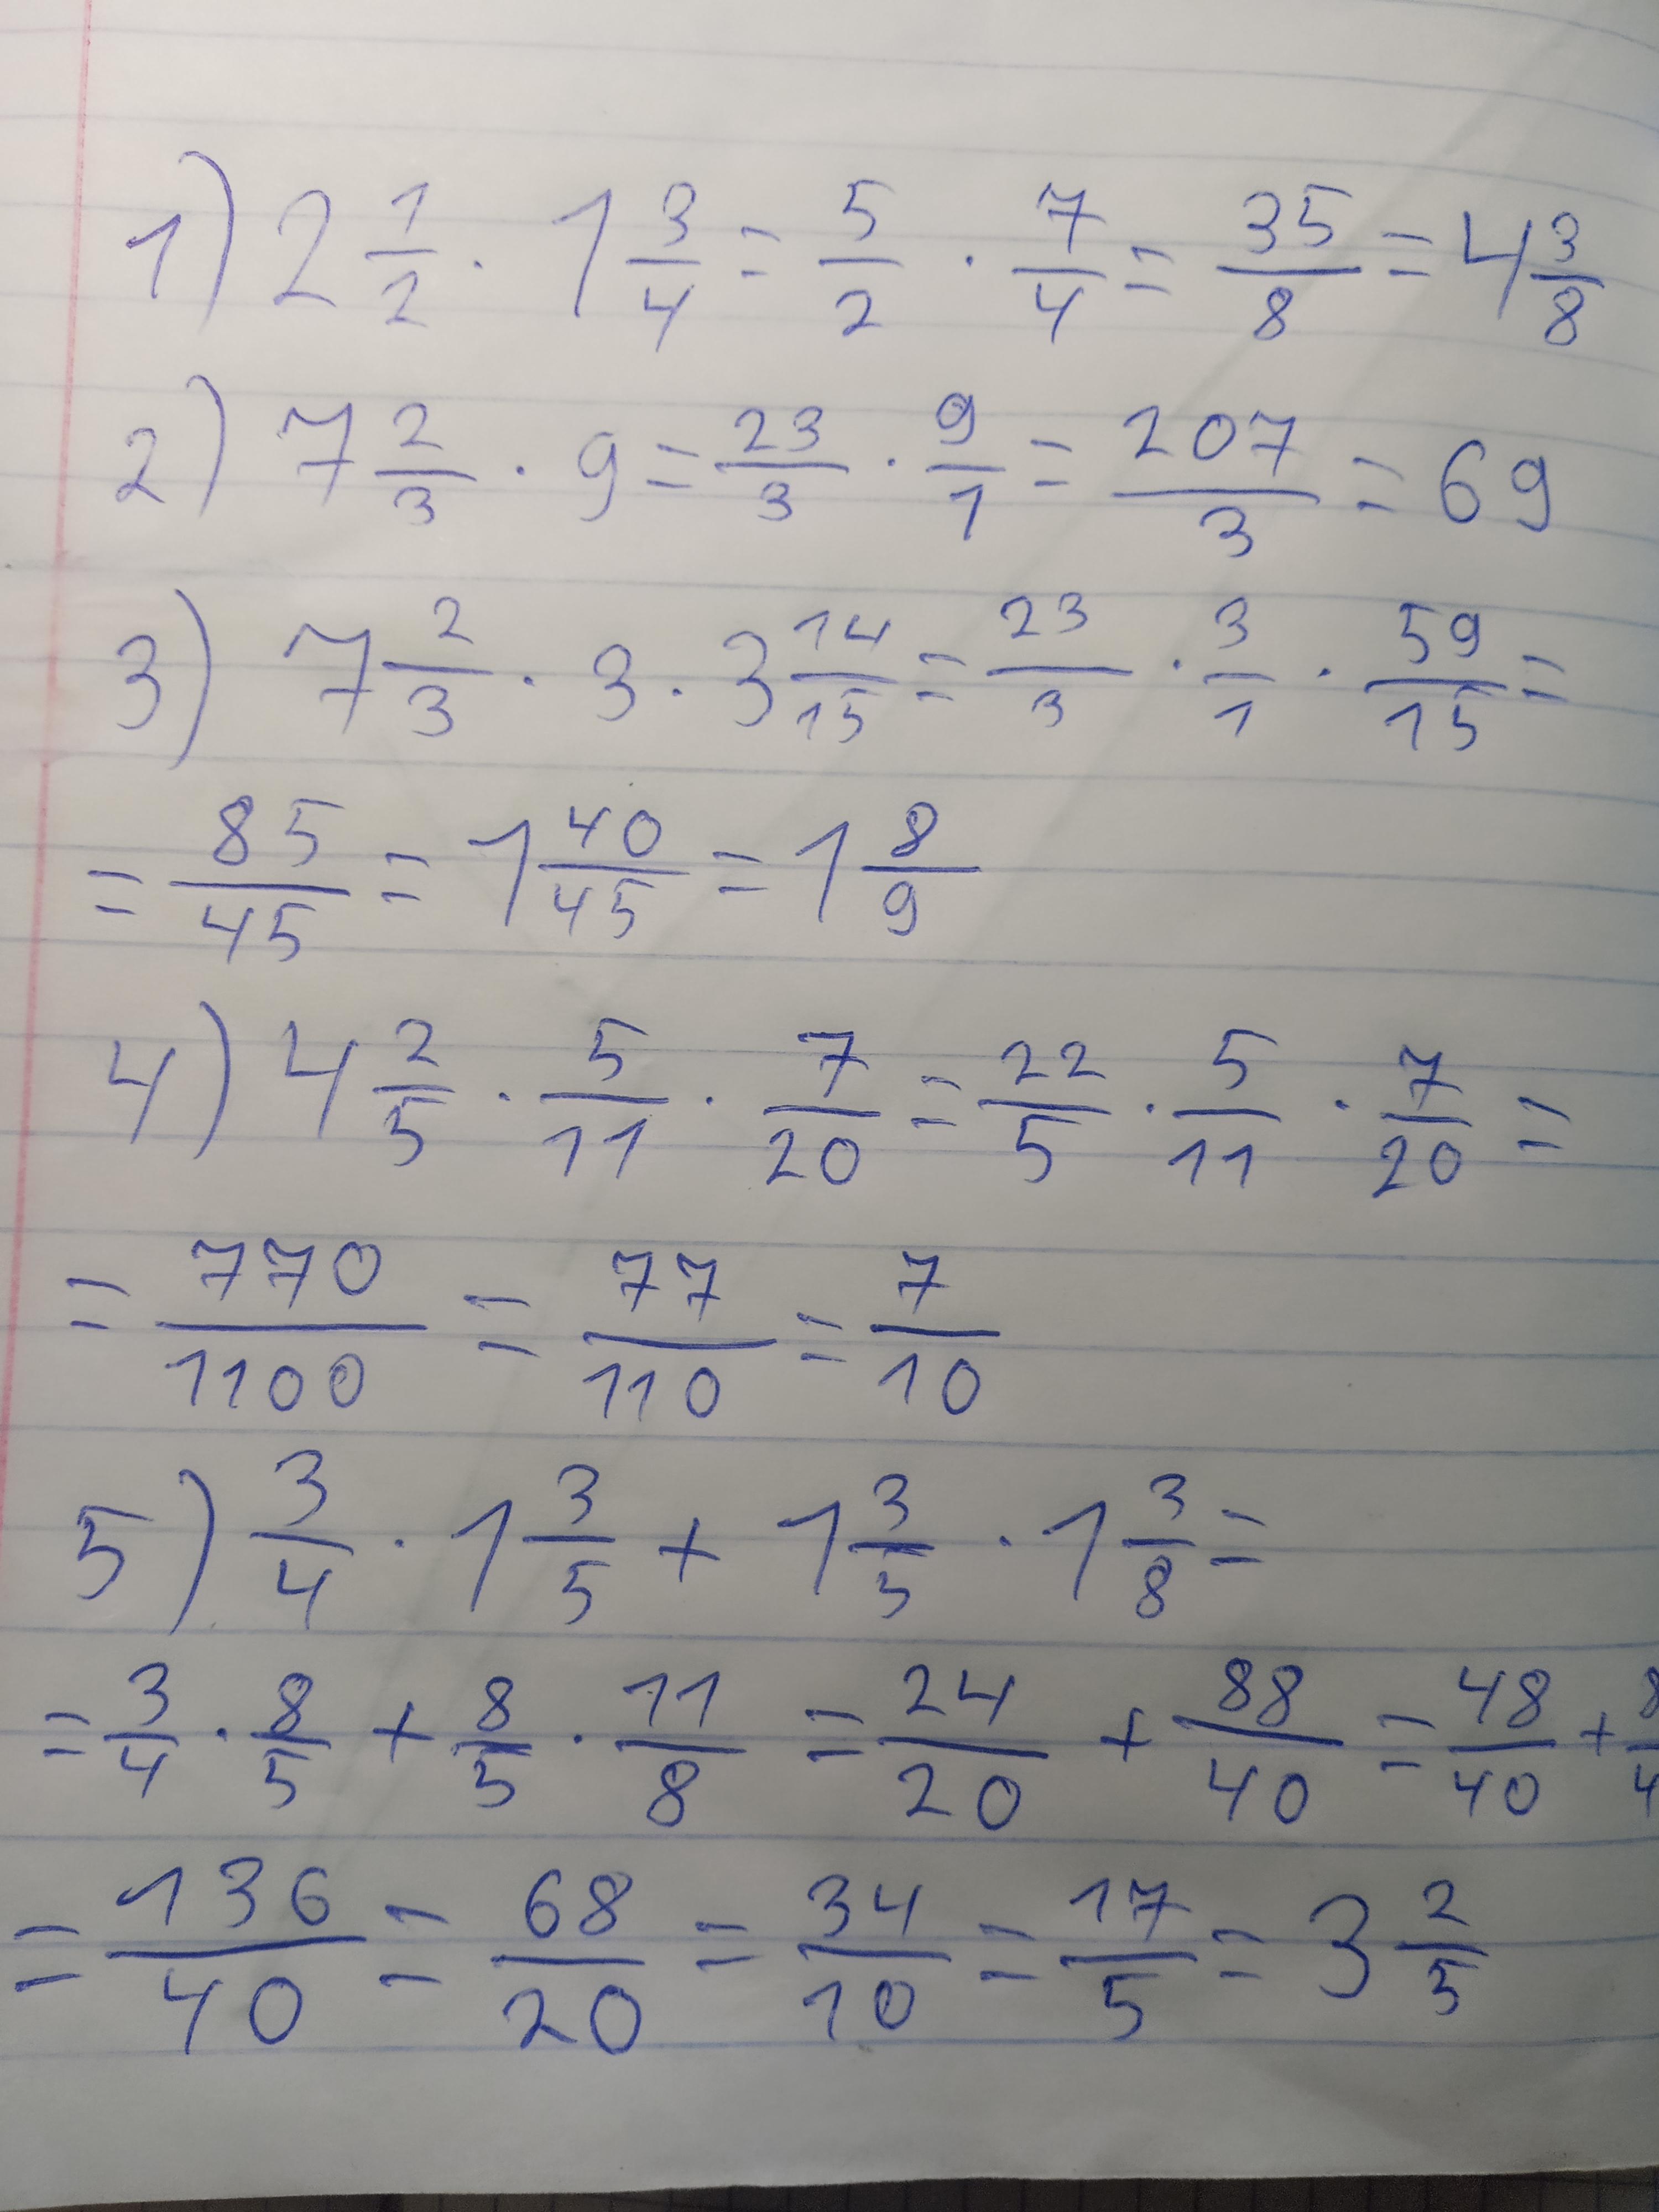 1) 2 1/2 · 1 3/4 = 5/2 · 7/4 = 35/8 = 4 3/8
2) 7 2/3 · 9 = 23/3 · 9/1 = 207/3 = 69
3) 7 2/3 · 3 · 3 14/15 = 23/3 · 3/1 · 59/15 =
= 85/45 = 1 40/45 = 1 8/9
4) 4 2/5 · 5/11 · 7/20 = 22/5 · 5/11 · 7/20 =
= 770/1100 = 77/110 = 7/10
5) 3/4 · 1 3/5 + 1 3/5 · 1 3/8 =
= 3/4 · 8/5 + 8/5 · 11/8 = 24/20 + 88/40 = 48/40 + 8/4
= 136/40 = 68/20 = 34/10 = 17/5 = 3 2/5